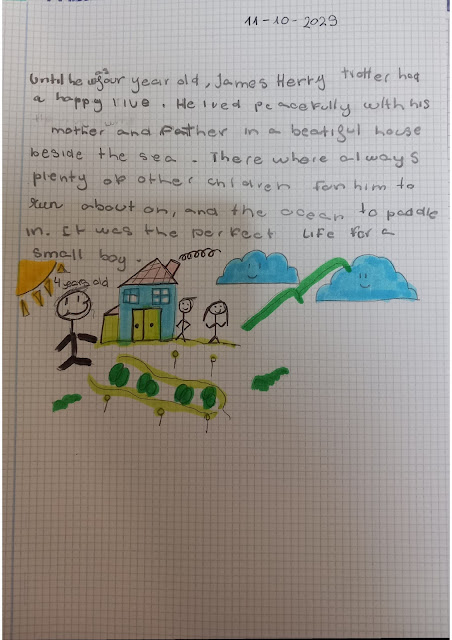 11-10-2023
Until he was four year old, James Herry trotter had
a happy live. He lved peacefully with his
mother and Father in a beatiful house
beside the sea. There where always
plenty of other children for him to
run about on, and the ocean to paddle
in. It was the perfect Life for a
small boy.
4 years old